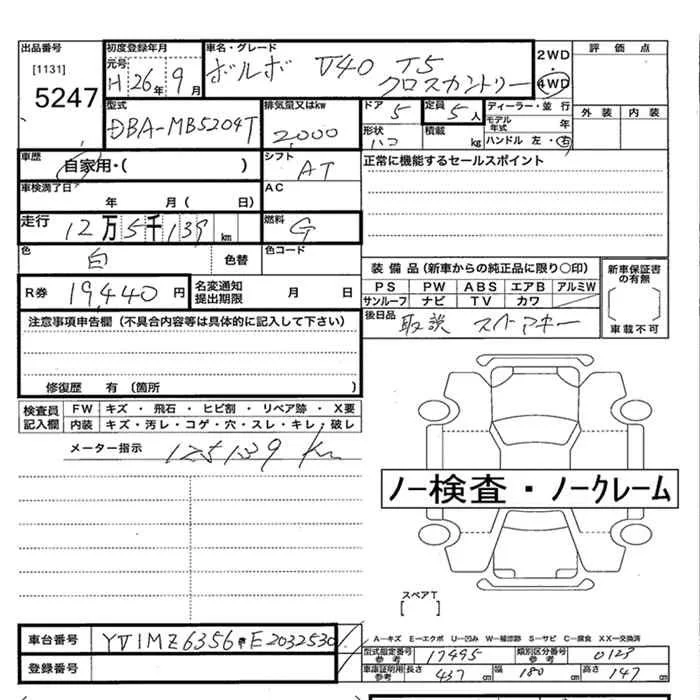 出品番号
[1131]
5247
初度登録年月
元号 H 26年 9月
車名・グレード
ボルボ V40 T5
クロスカントリー
2WD
・
4WD
評価点
外装 内装
型式
DBA-MB5204T
排気量又はkw
2,000
ドア 5
定員 5人
ディーラー・並行
モデル年式 年
形状 ハコ
積載 kg
ハンドル 左・右
車歴
自家用・( )
シフト
AT
正常に機能するセールスポイント
車検満了日
年 月( 日)
AC
走行
12万5千139km
燃料
G
色
白
色替
色コード
R券 19,440円
名変通知
提出期限
月 日
装備品(新車からの純正品に限り○印)
PS PW ABS エアB アルミW
サンルーフ ナビ TV カワ
後日品
取説 スペアキー
新車保証書
の有無
車載不可
注意事項申告欄(不具合内容等は具体的に記入して下さい)
修復歴 有(箇所 )
検査員
記入欄
FW キズ・飛石・ヒビ割・リペア跡・X要
内装 キズ・汚レ・コゲ・穴・スレ・キレ・破レ
メーター指示 125139 Km
ノー検査・ノークレーム
スペアT
[ ]
車台番号 YV1MZ6356*E2032530
登録番号
A―キズ E―エクボ U―凹み W―補修跡 S―サビ C―腐食 XX―交換済
型式指定番号
参考
17495
類別区分番号
参考
0123
車庫証明用
参考
長さ 437cm 幅 180cm 高さ 147cm